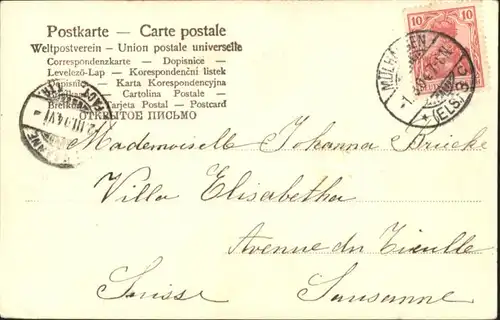 Postkarte - Carte postale
Weltpostverein - Union postale universelle
Correspondenzkarte - Dopisnice
Levelező-Lap - Korespondenční listek
Dopisnica - Karta Korespondencyjna
Cartolina Postale -
Tarjeta Postal - Postcard
ОТКРЫТОЕ ПИСЬМО
10 10
MÜLHAUSEN
(ELS.)
Mademoiselle Johanna Brücke
Villa Elisabetha
Avenue du
Suisse Lausanne